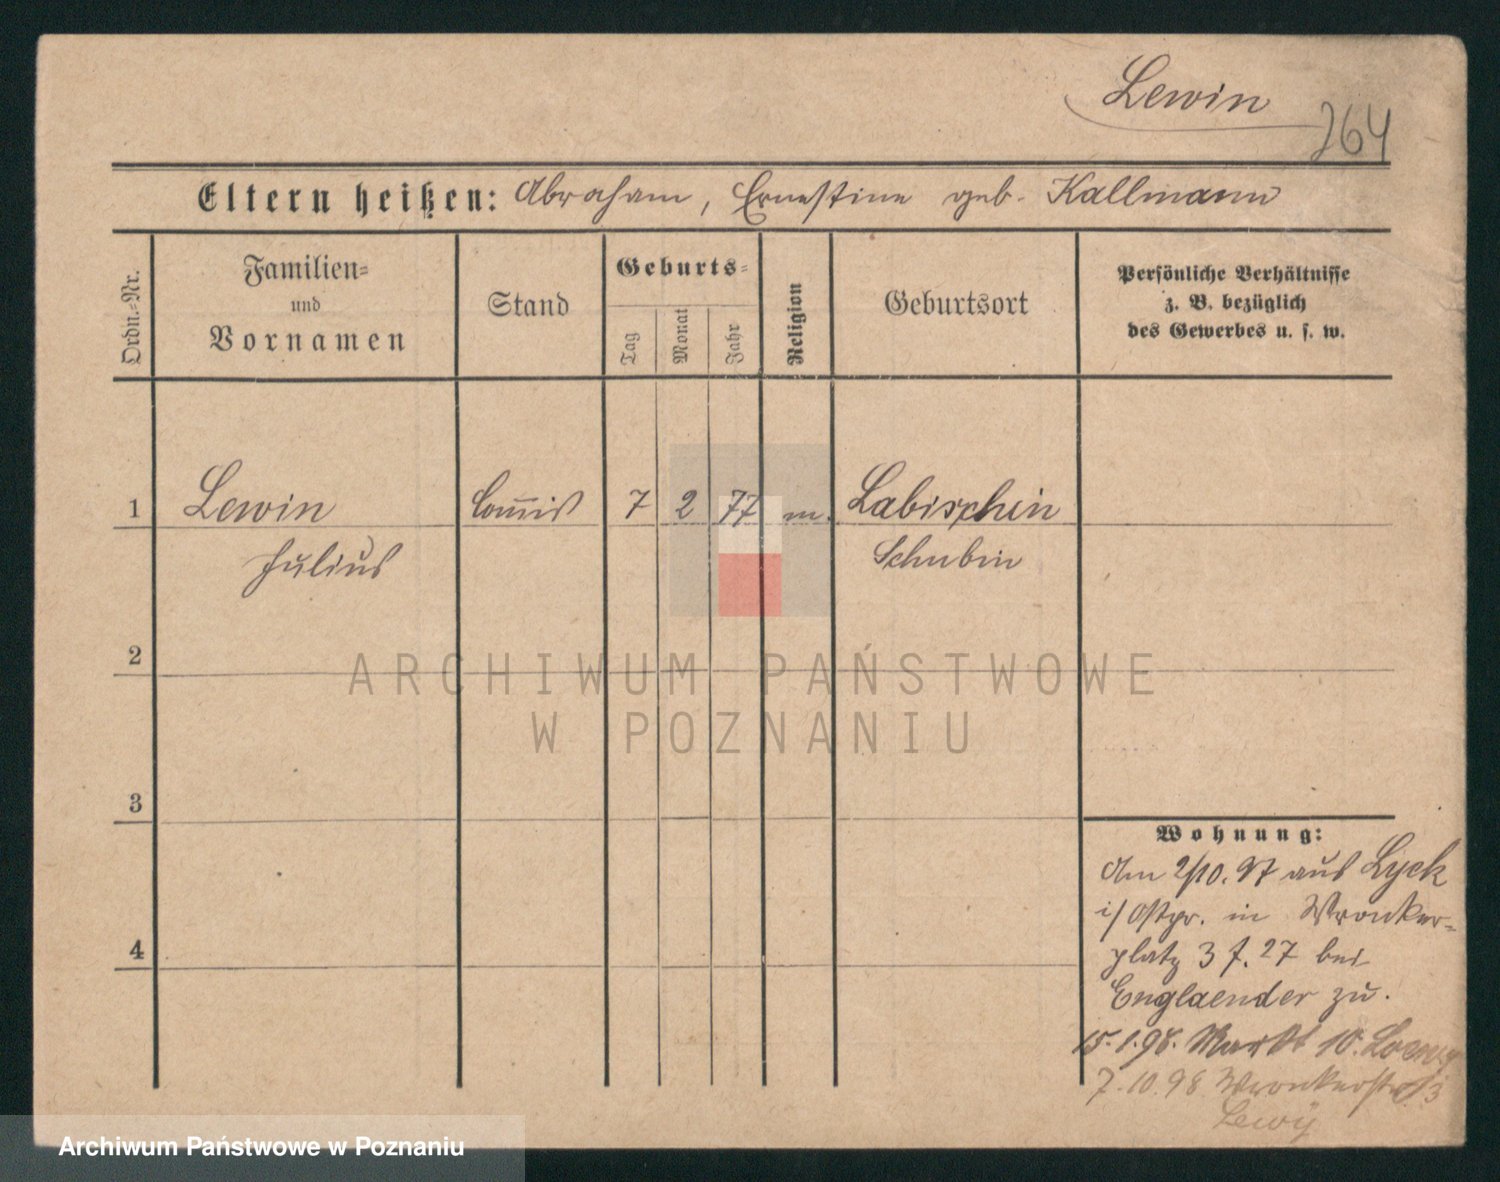 Lewin
264
Eltern heißen: Abraham, Ernestine geb. Kallmann
Ordn.=Nr.
Familien=
und
Vornamen
Stand
Geburts=
Tag
Monat
Jahr
Religion
Geburtsort
Persönliche Verhältnisse
z. B. bezüglich
des Gewerbes u. s. w.
1
Lewin
Julius
Com̅is
7
2
77
m.
Labischin
Schubin
2
3
4
Wohnung:
Am 2/10. 97 aus Lyck
i/Ostpr. in Wronker=
platz 3 f. 27 bei
Englaender zu.
15.1.98. Markt 10. Loewy
7.10.98 Wronkerstr. 13
Lewy
ARCHIWUM PAŃSTWOWE
W POZNANIU
Archiwum Państwowe w Poznaniu